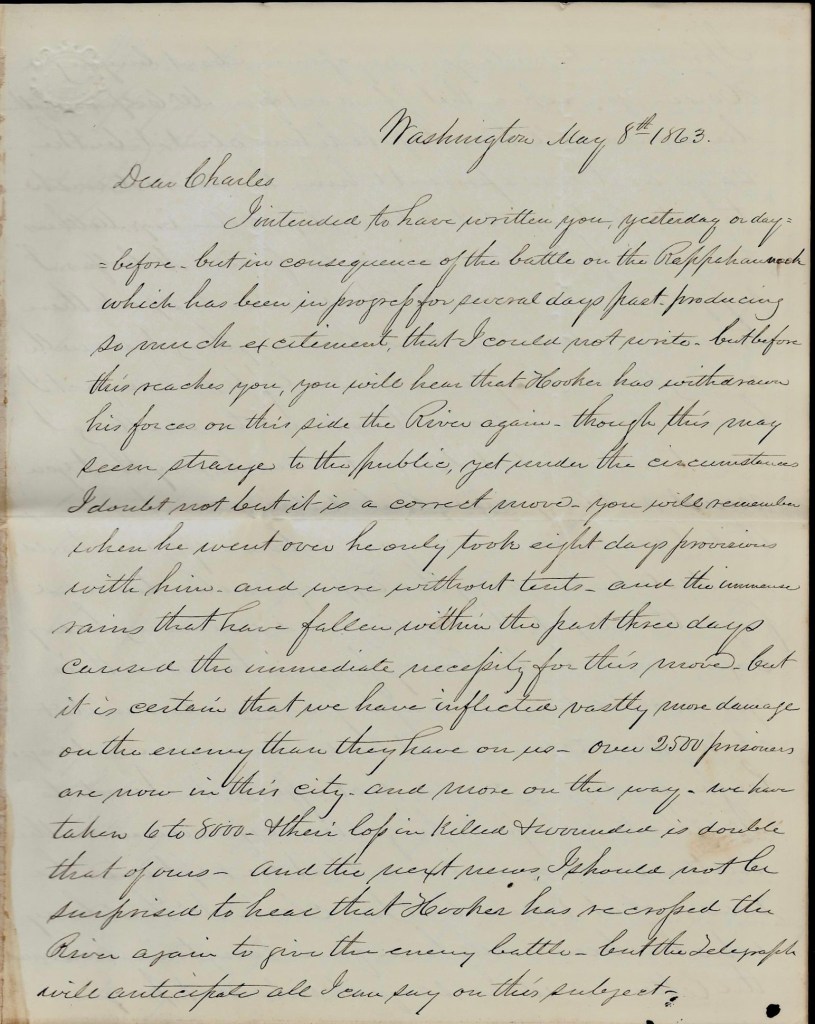 Washington May 8th 1863.
Dear Charles
I intended to have written you, yesterday or day=
=before - but in consequence of the battle on the Rappahannock
which has been in progress for several days past - producing
so much excitement, that I could not write - but before
this reaches you, you will hear that Hooker has withdrawn
his forces on this side the River again - though this may
seem strange to the public, yet under the circumstances
I doubt not but it is a correct move - you will remember
when he went over he only took eight days provisions
with him - and were without tents - and the immense
rains that have fallen within the past three days
caused the immediate necessity for this move - but
it is certain that we have inflicted vastly more damage
on the enemy than they have on us - over 2500 prisoners
are now in this city - and more on the way - we have
taken 6 to 8000 - & their loss in killed & wounded is double
that of ours - and the next news, I should not be
surprised to hear that Hooker has recrossed the
River again to give the enemy battle - but the Telegraph
will anticipate all I can say on this subject -